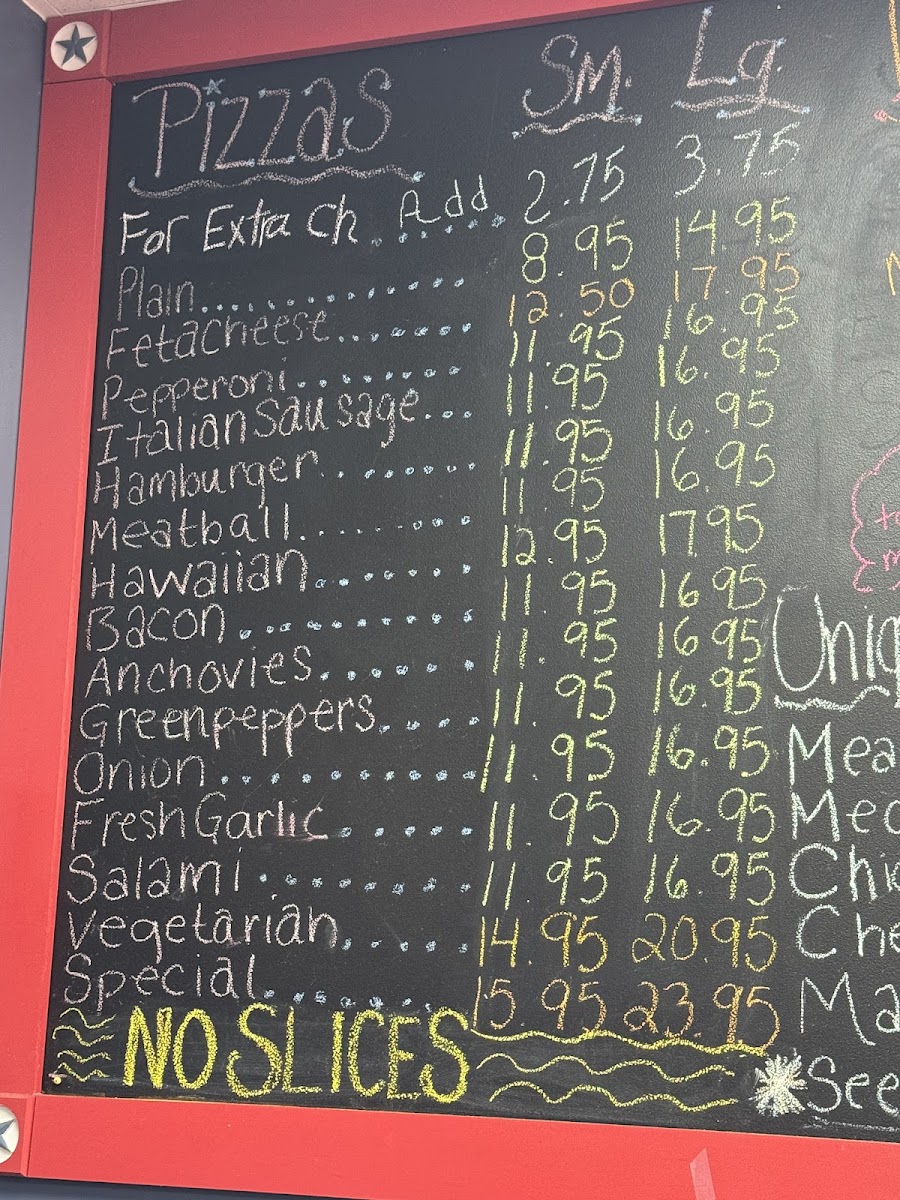 Pizzas Sm. Lg.
For Extra Ch. Add 2.75 3.75
Plain.............. 8.95 14.95
Feta Cheese........ 12.50 17.95
Pepperoni........ 11.95 16.95
Italian Sausage... 11.95 16.95
Hamburger....... 11.95 16.95
Meatball........ 11.95 16.95
Hawaiian....... 12.95 17.95
Bacon.......... 11.95 16.95
Anchovies...... 11.95 16.95
Greenpeppers.... 11.95 16.95
Onion.......... 11.95 16.95
Fresh Garlic...... 11.95 16.95
Salami......... 11.95 16.95
Vegetarian..... 14.95 20.95
Special........ 15.95 23.95
NO SLICES
Uniq
Mea
Chi
Che
Ma
See